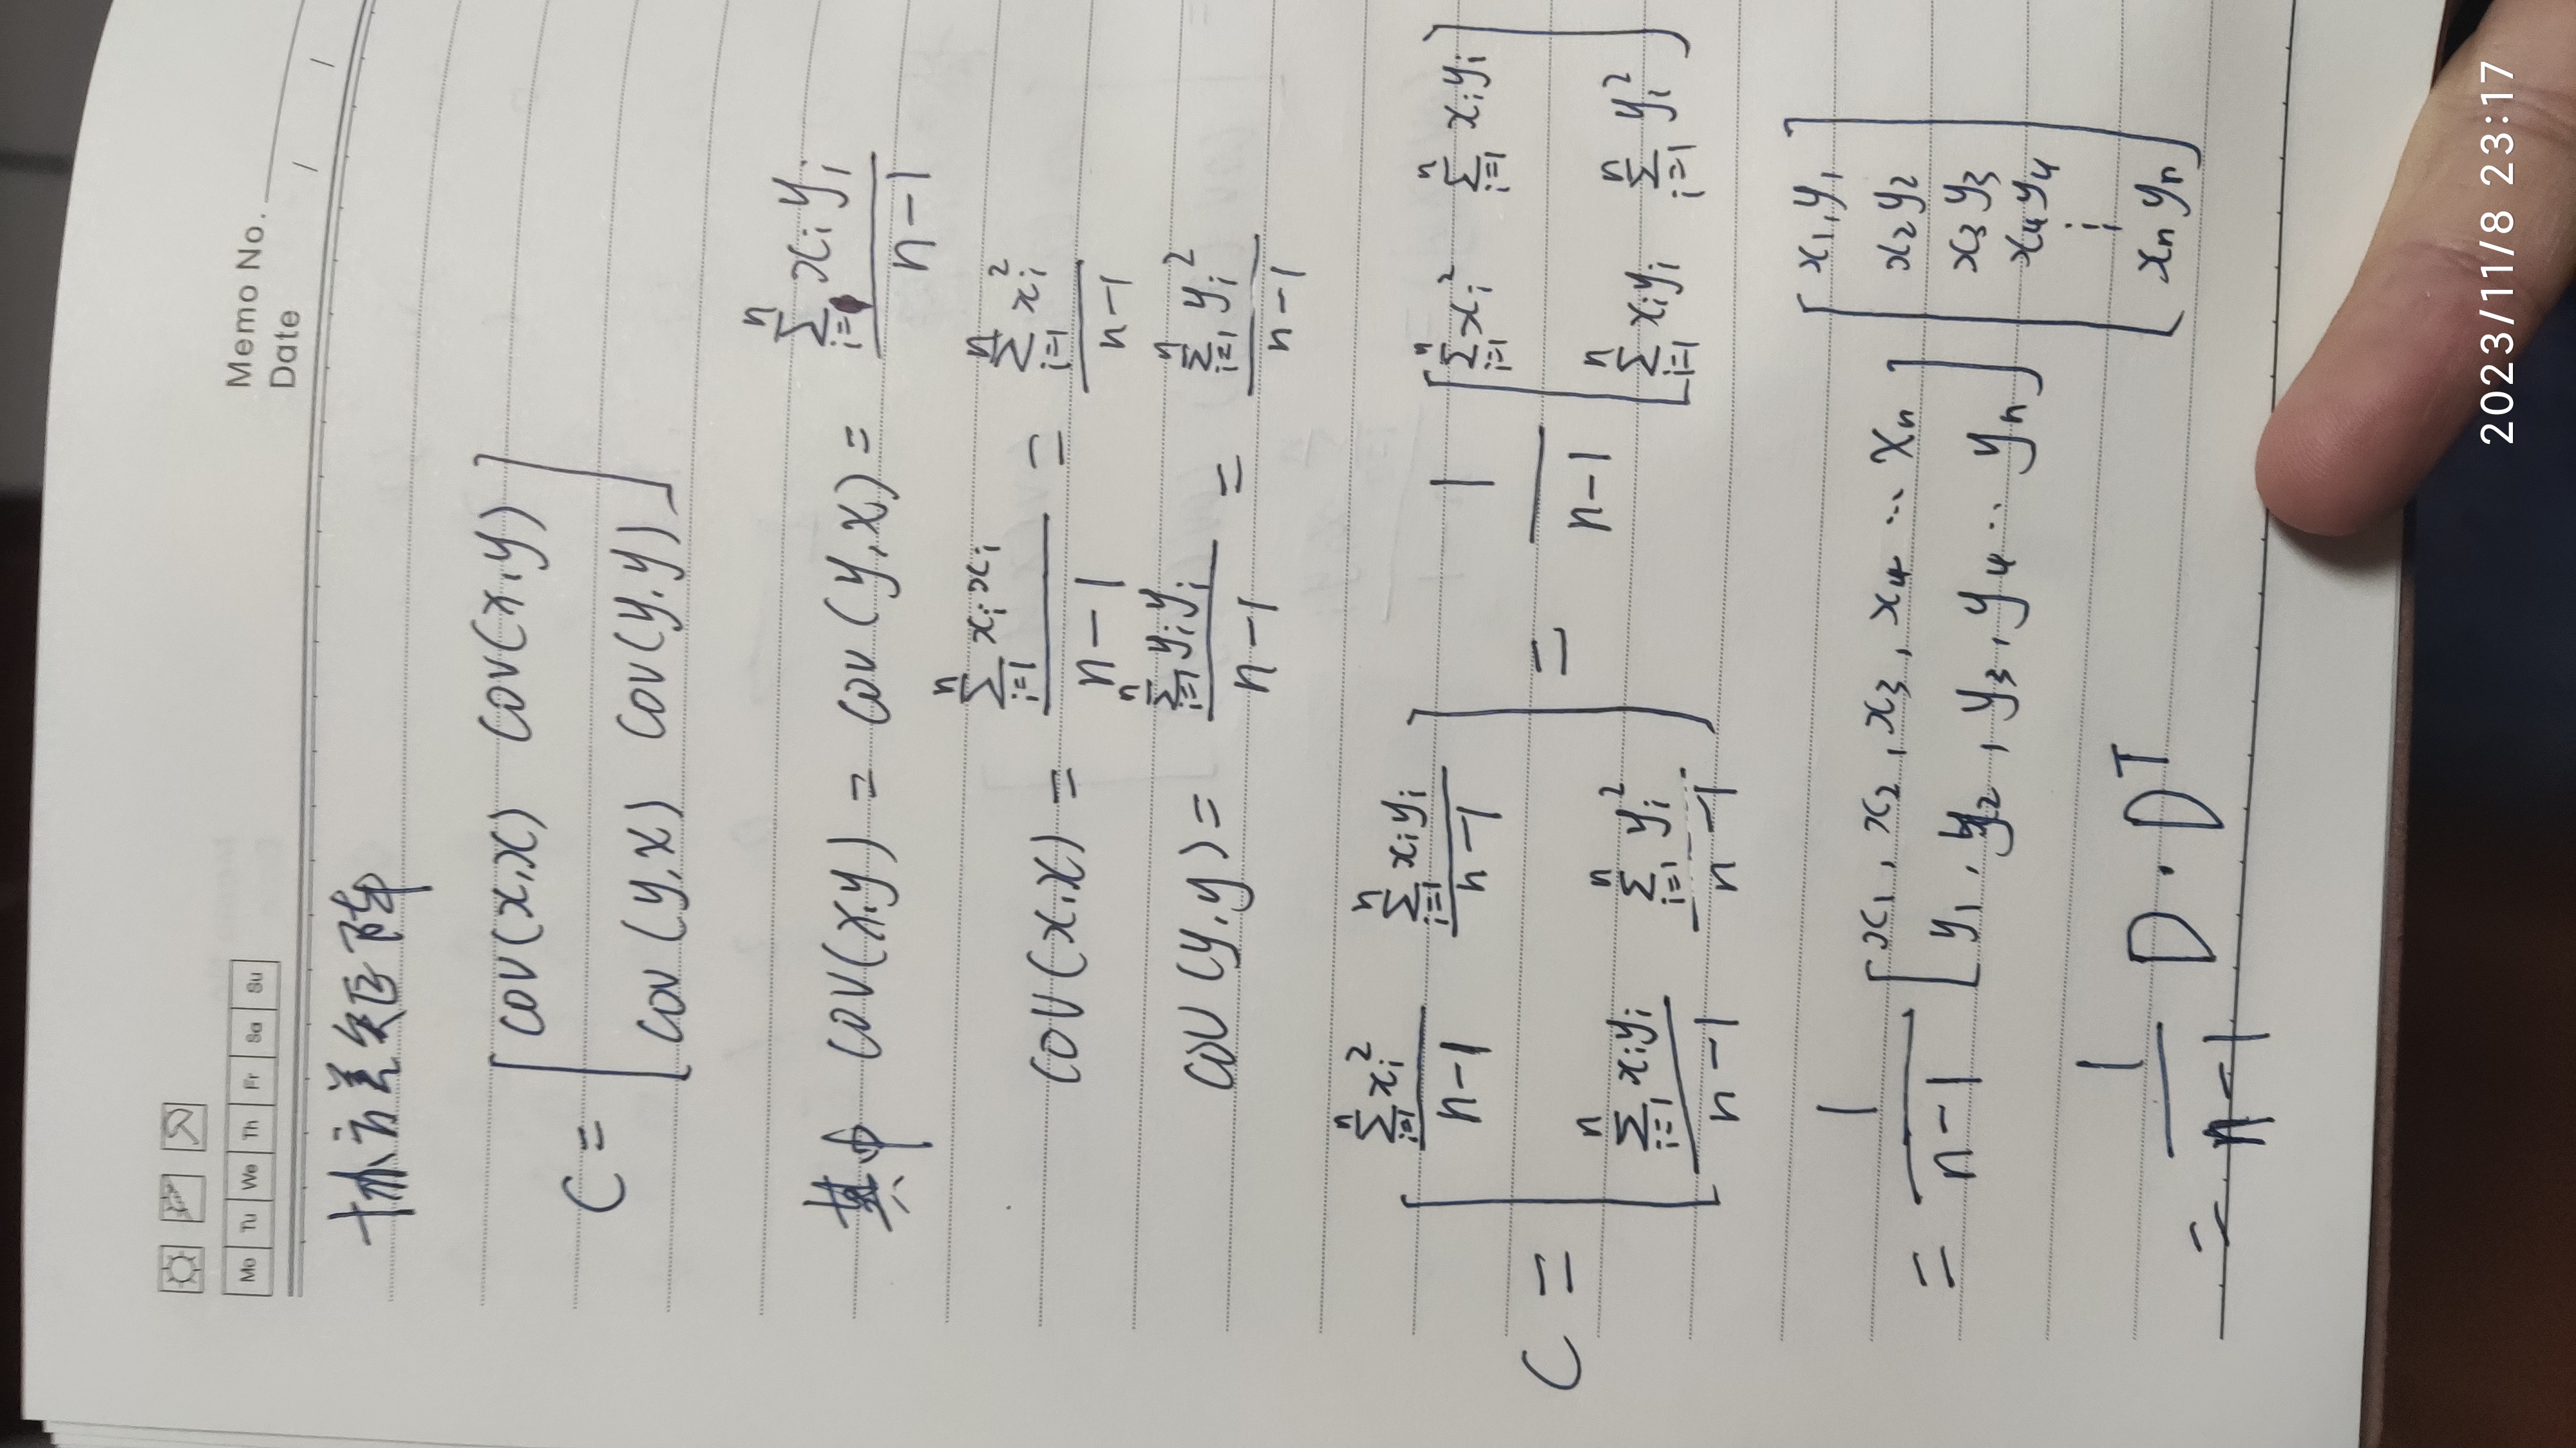 Mo Tu We Th Fr Sa Su
Memo No.
Date / /
协方差矩阵
C = [ cov(x,x) cov(x,y)
cov(y,x) cov(y,y) ]
其中 cov(x,y) = cov(y,x) = \frac{\sum_{i=}^{n} x_i y_i}{n-1}
cov(x,x) = \frac{\sum_{i=1}^{n} x_i x_i}{n-1} = \frac{\sum_{i=1}^{n} x_i^2}{n-1}
cov(y,y) = \frac{\sum_{i=1}^{n} y_i y_i}{n-1} = \frac{\sum_{i=1}^{n} y_i^2}{n-1}
C = [ \frac{\sum_{i=1}^{n} x_i^2}{n-1} \frac{\sum_{i=1}^{n} x_i y_i}{n-1}
\frac{\sum_{i=1}^{n} x_i y_i}{n-1} \frac{\sum_{i=1}^{n} y_i^2}{n-1} ] = \frac{1}{n-1} [ \sum_{i=1}^{n} x_i^2 \sum_{i=1}^{n} x_i y_i
\sum_{i=1}^{n} x_i y_i \sum_{i=1}^{n} y_i^2 ]
= \frac{1}{n-1} [ x_1, x_2, x_3, x_4 ... x_n
y_1, y_2, y_3, y_4 .. y_n ]
[ x_1, y_1
x_2 y_2
x_3 y_3
x_4 y_4
⋮
x_n y_n ]
= \frac{1}{n-1} D · D^T
2023/11/8 23:17